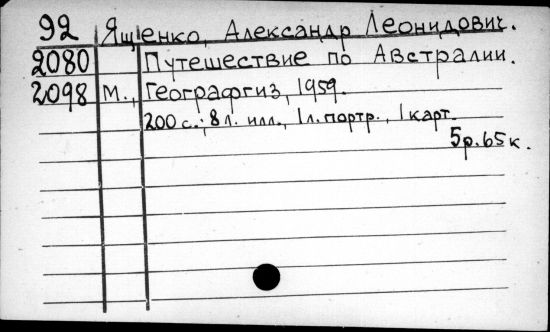 92 Ященко, Александр Леонидович.
2080 Путешествие по Австралии.
2098 М., Географгиз, 1959.
200 с.; 8 л. илл., 1 л. портр., 1 карт.
5р.65к.